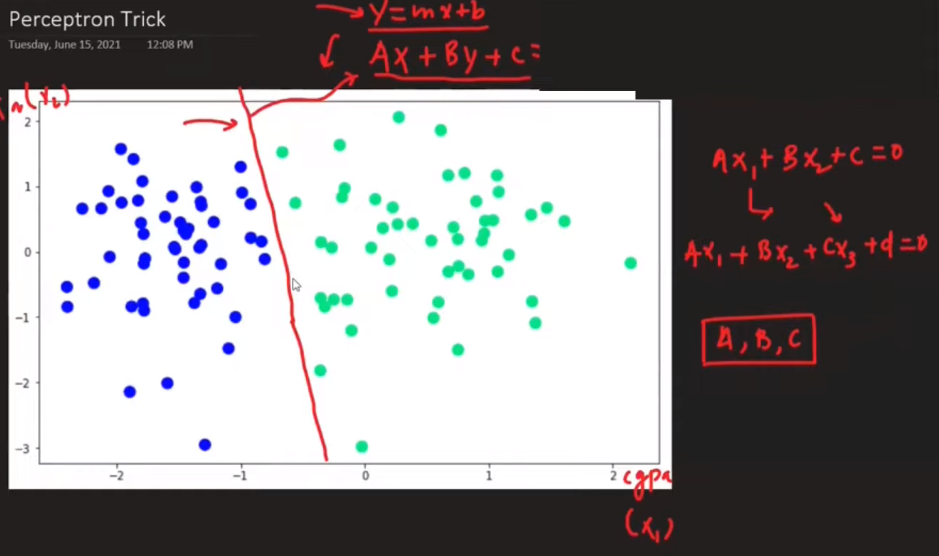 Perceptron Trick
Tuesday, June 15, 2021 12:08 PM
Y = mx + b
AX + BY + C =
(x₂)
2
1
0
-1
-2
-3
-2 -1 0 1 2
cgpa
(x₁)
Ax₁ + Bx₂ + C = 0
Ax₁ + Bx₂ + Cx₃ + d = 0
A, B, C